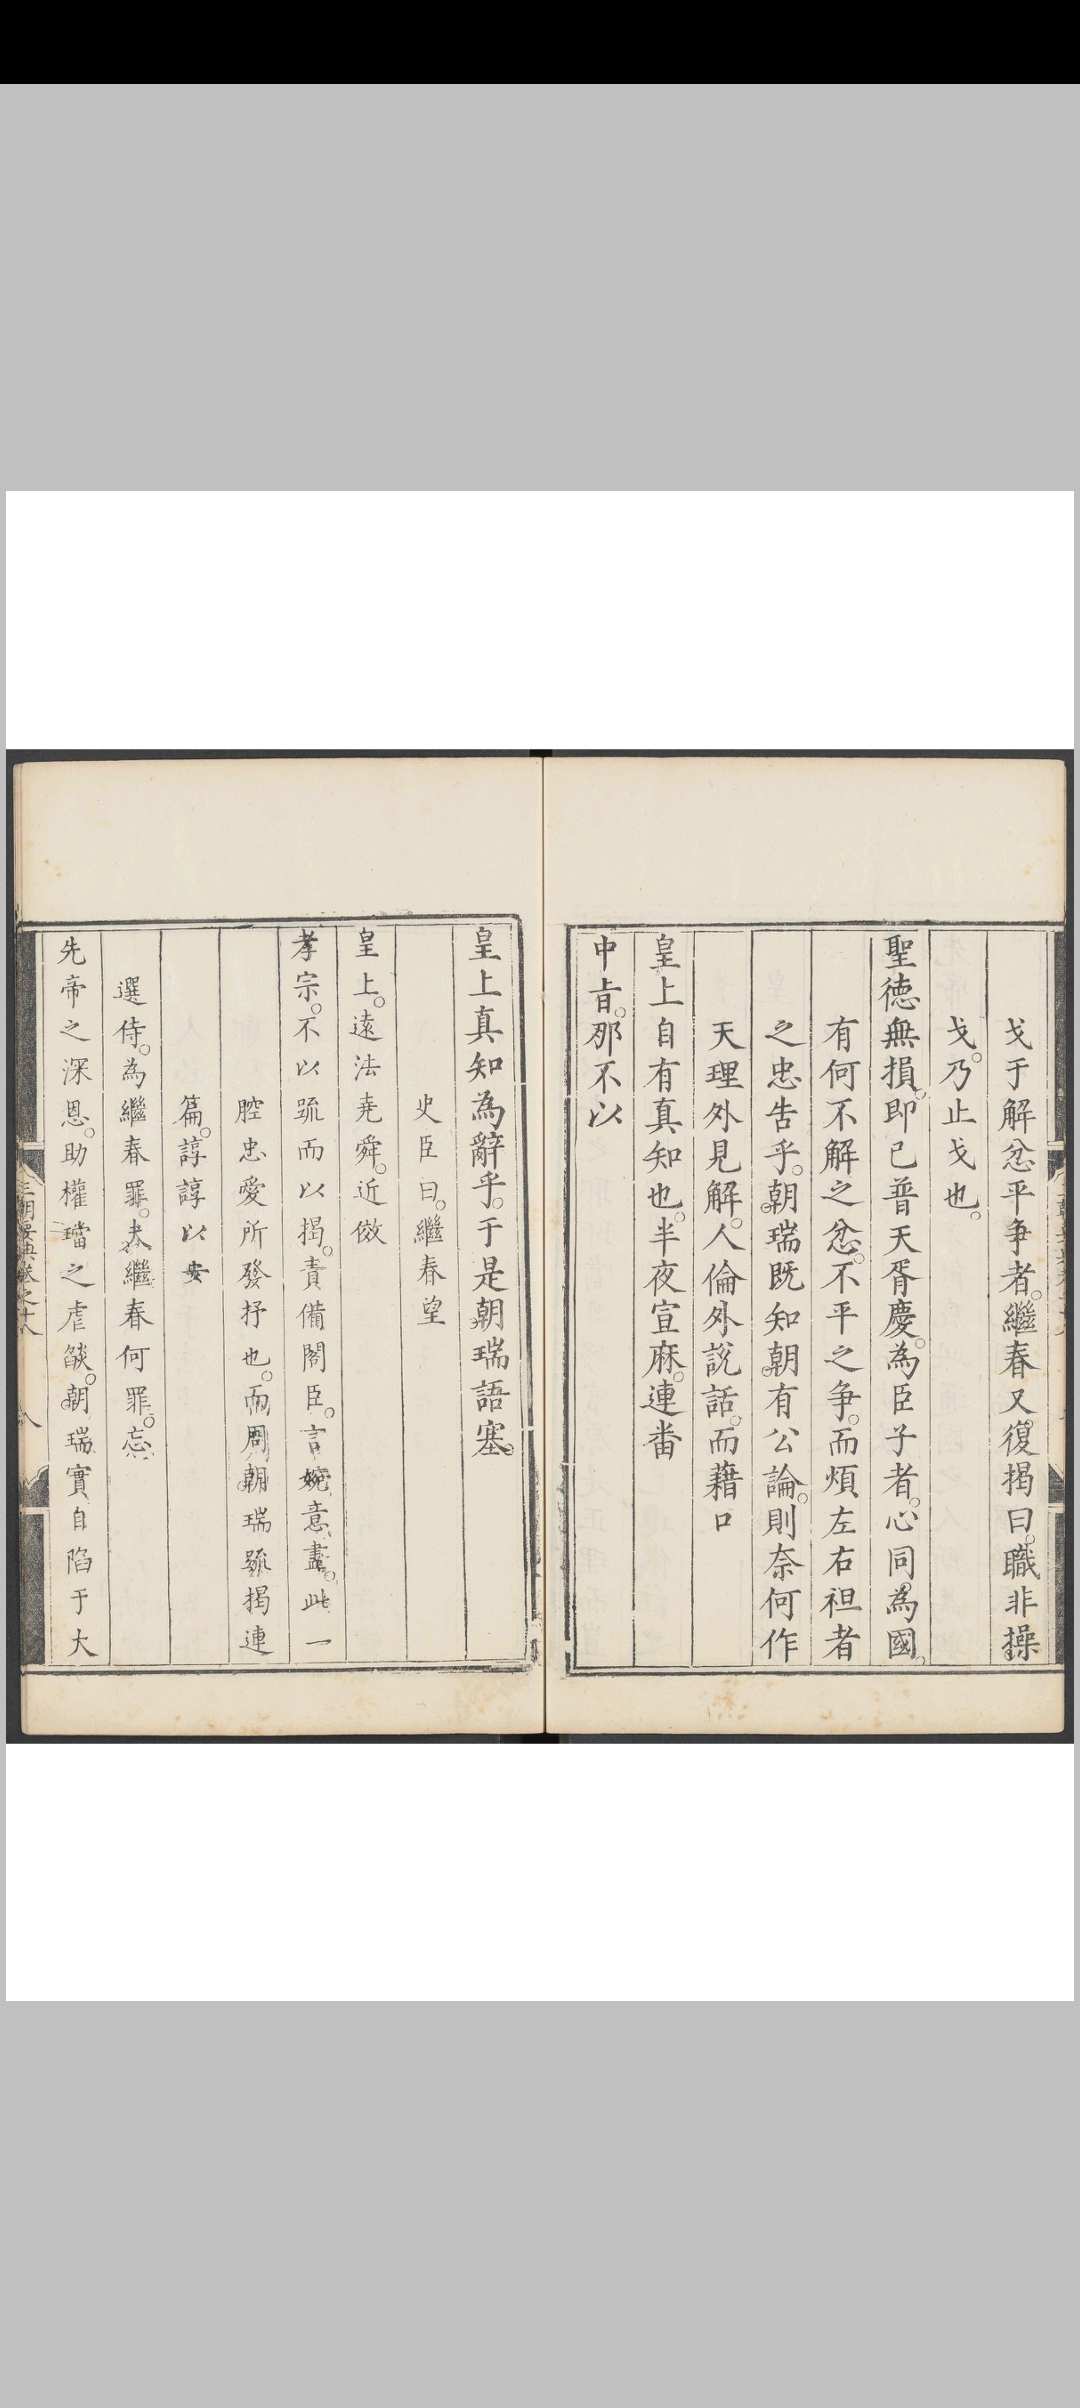 戈于解忿平争者。繼春又復揭曰。職非操
戈。乃止戈也。
聖德無損。即已普天胥慶。為臣子者。心同為國。
有何不解之忿。不平之争。而煩左右袒者
之忠告乎。朝瑞既知朝有公論。則奈何作
天理外見解。人倫外說話。而藉口
皇上自有真知也。半夜宣麻。連番
中旨。那不以
皇上真知為辭乎。于是朝瑞語塞。
史臣曰。繼春望
皇上。遠法堯舜。近倣
孝宗。不以疏而以揭。責備閣臣。言婉意盡。此一
腔忠愛所發抒也。而周朝瑞疏揭連
篇。諄諄以安
選侍。為繼春罪。夫繼春何罪。忘
先帝之深恩。助權璫之虐燄。朝瑞實自陷于大
三朝要典卷之十八
八